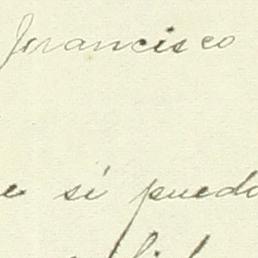 Francisco
e si puedo